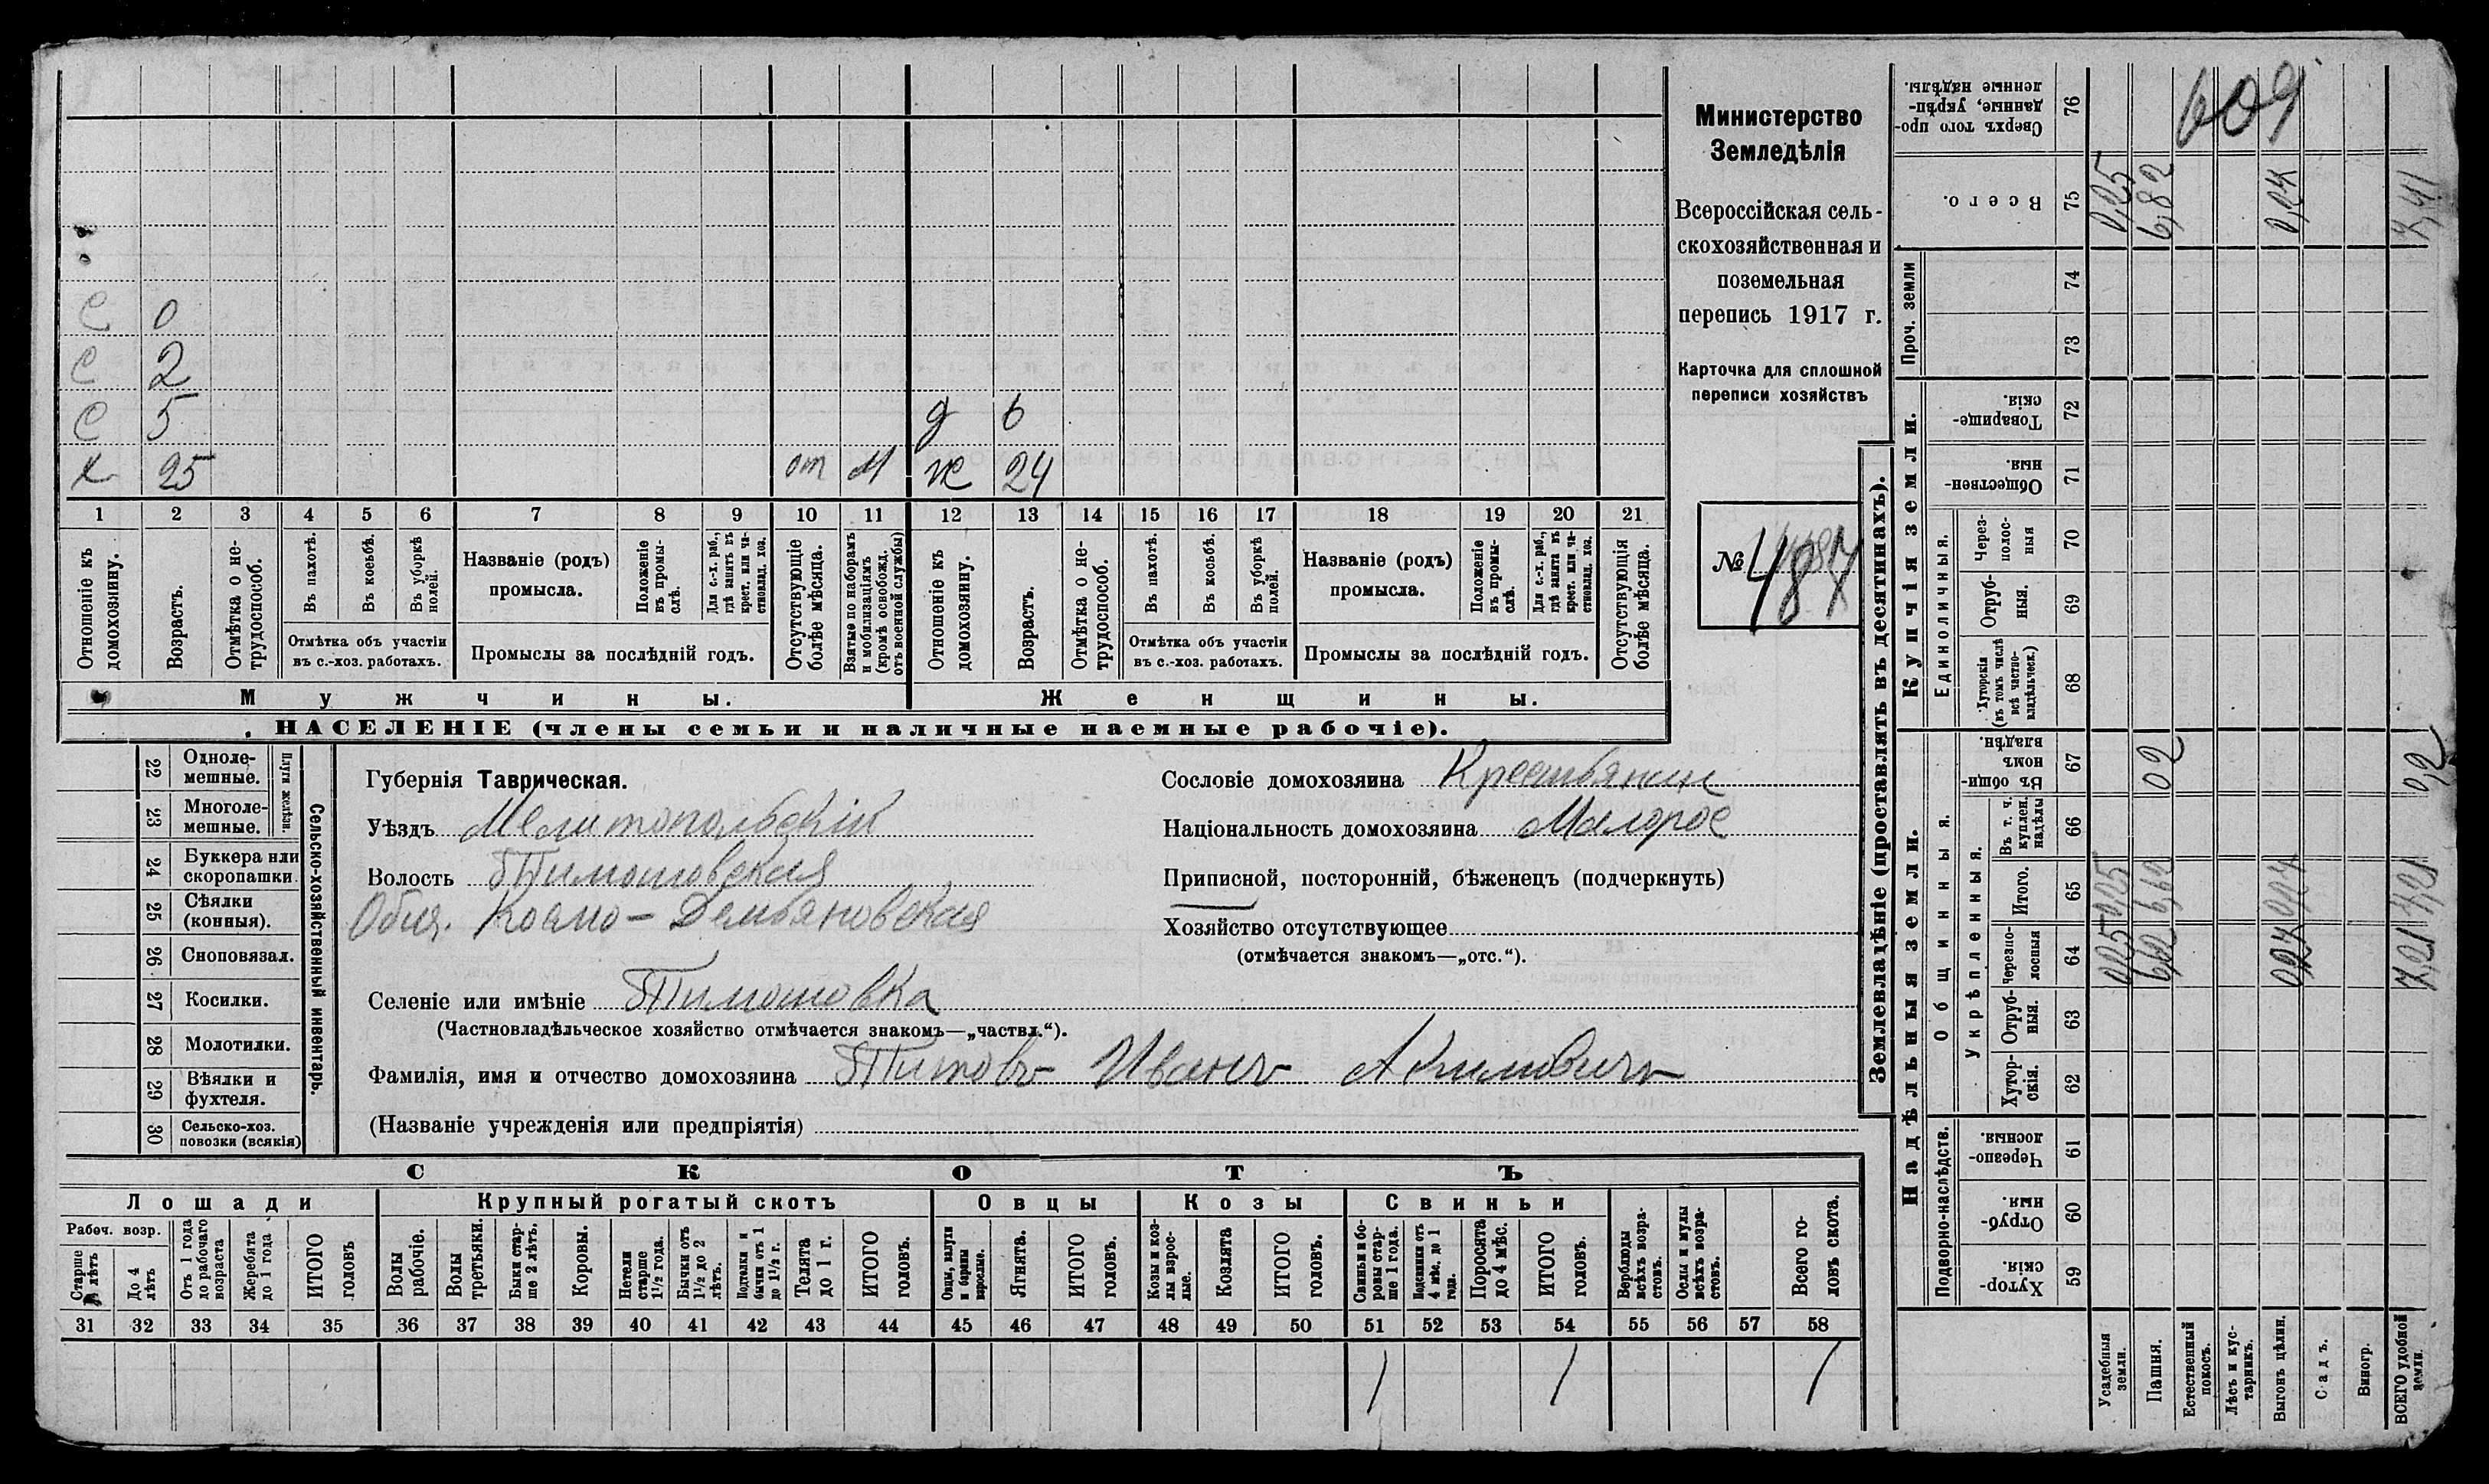 С 0
С 2
С 5 д 6
х 25 от М ж 24
1 2 3 4 5 6 7 8 9 10 11 12 13 14 15 16 17 18 19 20 21
Отношеніе къ домохозяину.
Возрастъ.
Отмѣтка о не-трудоспособ.
Въ пахотѣ.
Въ косьбѣ.
Въ уборкѣ полей.
Отмѣтка объ участіи въ с.-хоз. работахъ.
Названіе (родъ) промысла.
Положеніе въ промы-слѣ.
Для с.-х. раб., гдѣ занятъ въ крест. или ча-стновлад. хоз.
Промыслы за послѣдній годъ.
Отсутствующіе болѣе мѣсяца.
Взятые по наборамъ и мобилизаціямъ (кромѣ освобожд. отъ военной службы)
Отношеніе къ домохозяину.
Возрастъ.
Отмѣтка о не-трудоспособ.
Въ пахотѣ.
Въ косьбѣ.
Въ уборкѣ полей.
Отмѣтка объ участіи въ с.-хоз. работахъ.
Названіе (родъ) промысла.
Положеніе въ промы-слѣ.
Для с.-х. раб., гдѣ занята въ крест. или ча-стновлад. хоз.
Промыслы за послѣдній годъ.
Отсутствующія болѣе мѣсяца.
Мужчины. Женщины.
НАСЕЛЕНІЕ (члены семьи и наличные наемные рабочіе).
Министерство
Земледѣлія
Всероссійская сель-
скохозяйственная и
поземельная
перепись 1917 г.
Карточка для сплошной
переписи хозяйствъ
№ 487
22 Одноле-мешные.
23 Многоле-мешные.
Плуги желѣзн.
24 Буккера или скоропашки
25 Сѣялки (конныя).
26 Сноповязал.
27 Косилки.
28 Молотилки.
29 Вѣялки и фухтеля.
30 Сельско-хоз. повозки (всякія)
Сельско-хозяйственный инвентарь.
Губернія Таврическая.
Уѣздъ Мелитопольскій
Волость Тимошовская
Общ. Космо-Демьяновская
Селеніе или имѣніе Тимошовка
(Частновладѣльческое хозяйство отмѣчается знакомъ—„частвл.“).
Фамилія, имя и отчество домохозяина Титовъ Иванъ Акимовичъ
(Названіе учрежденія или предпріятія)
Сословіе домохозяина Крестьянин
Національность домохозяина Малорос
Приписной, посторонній, бѣженецъ (подчеркнуть)
Хозяйство отсутствующее
(отмѣчается знакомъ—„отс.“).
СКОТЪ
Лошади Крупный рогатый скотъ Овцы Козы Свиньи
Рабоч. возр.
Старше лѣтъ
До 4 лѣтъ
Отъ 1 года до рабочаго возраста
Жеребята до 1 года
ИТОГО головъ
Волы рабочіе.
Волы третьяки.
Быки стар-ше 2 лѣтъ.
Коровы.
Нетели старше 1½ года.
Бычки отъ 1½ до 2 лѣтъ.
Подтелки и бычки отъ 1 до 1½ г.
Телята до 1 г.
ИТОГО головъ.
Овцы, валухи и бараны взрослые.
Ягнята.
ИТОГО головъ.
Козы и коз-лы взрос-лые.
Козлята
ИТОГО головъ.
Свиньи и бо-ровы стар-ше 1 года.
Подсвинки отъ 4 мѣс. до 1 года.
Поросята до 4 мѣс.
ИТОГО головъ.
Верблюды всѣхъ возра-стовъ.
Ослы и мулы всѣхъ возра-стовъ.
Всего го-ловъ скота.
31 32 33 34 35 36 37 38 39 40 41 42 43 44 45 46 47 48 49 50 51 52 53 54 55 56 57 58
1 1 1
Землевладѣніе (проставлять въ десятинахъ).
Надѣльныя земли. Купчія земли. Проч. земли
Подворно-наслѣдств.
Общинныя.
Укрѣпленныя.
Единоличныя.
59 Хутор-скія.
60 Отруб-ныя.
61 Черезпо-лосныя.
62 Хутор-скія.
63 Отруб-ныя.
64 Черезпо-лосныя
65 Итого.
66 Въ т. ч. куплен. надѣлы
67 Въ общи-номъ владѣн.
68 Хуторскія (въ томъ числѣ всѣ частно-владѣльческ.)
69 Отруб-ныя.
70 Через-полос-ныя
71 Обществен-ныя.
72 Товарище-скія.
73
74
75 Всего.
76 Сверхъ того про-данные, укрѣп-ленные надѣлы.
609
Усадебныя земли. 0,25 0,25 0,25
Пашня. 6,62 6,62 02 6,82
Естественный покосъ.
Лѣсъ и кус-тарникъ.
Выгонъ цѣлин.
Садъ.
Виногр.
ВСЕГО удобной земли. 7,21 7,21 0,2 7,41